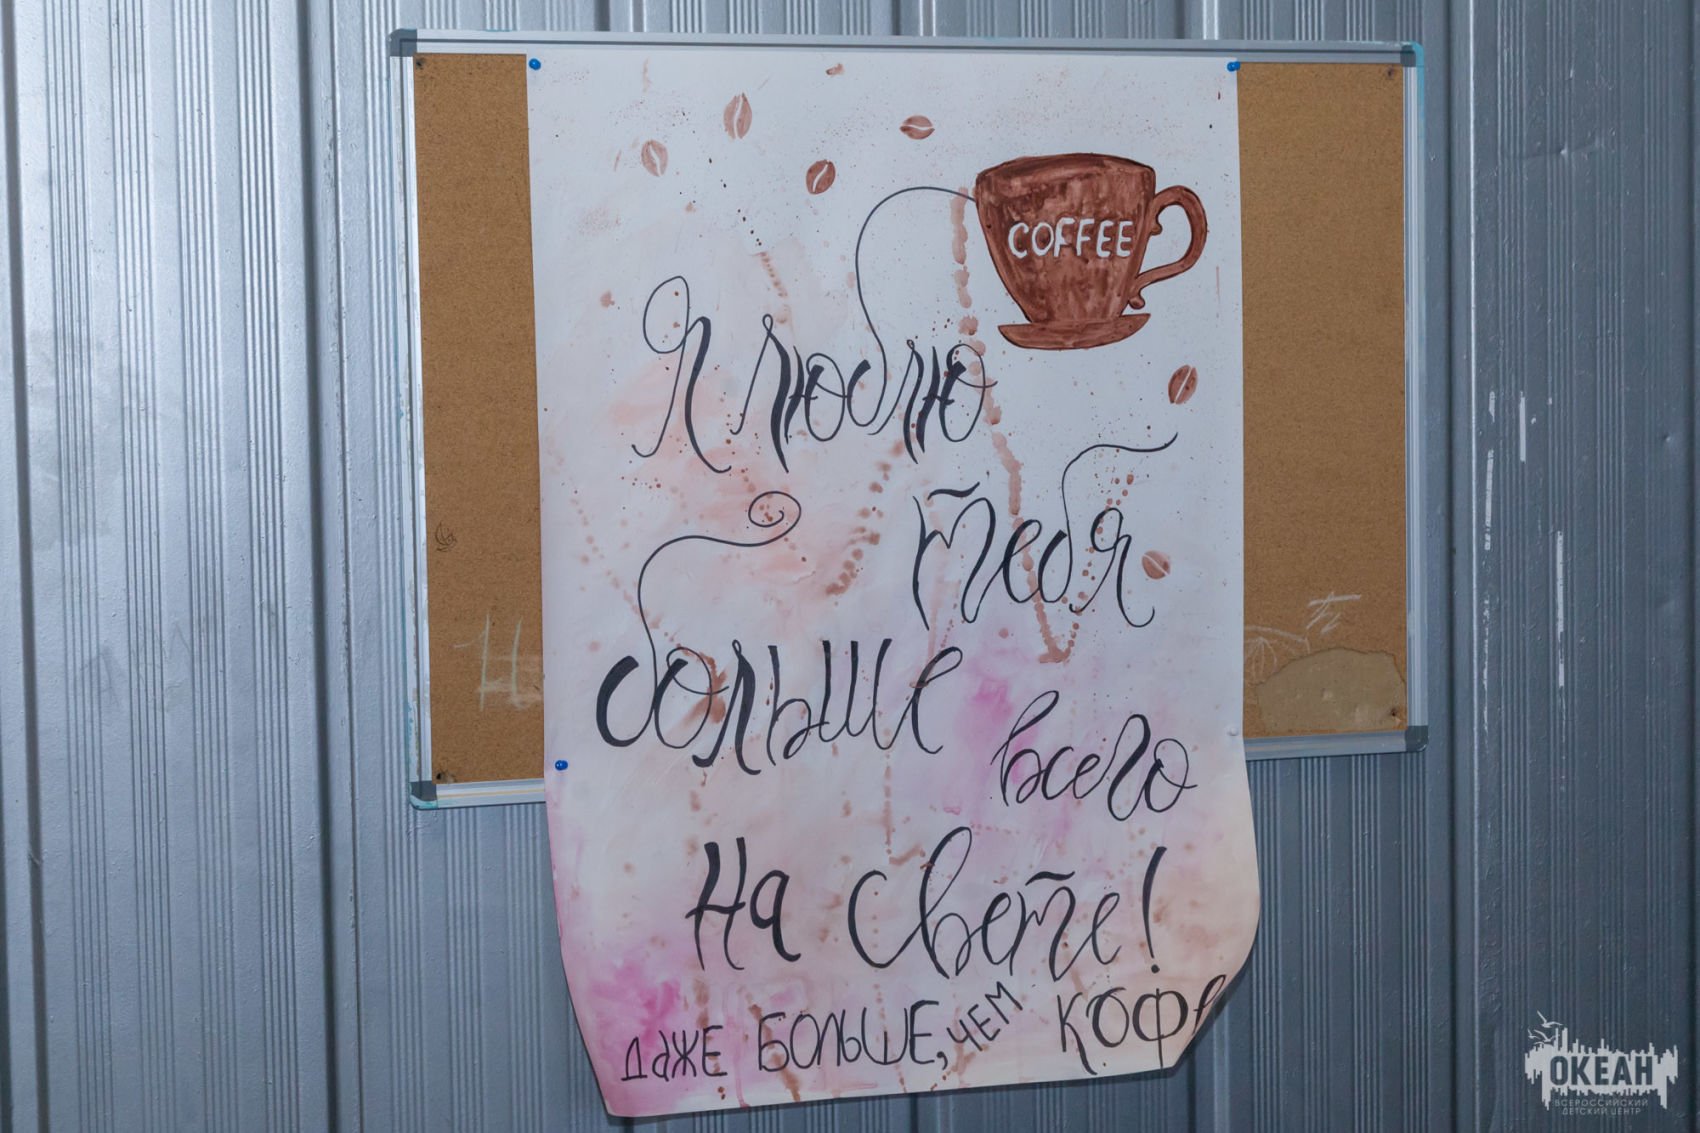 COFFEE
Я люблю
тебя
больше
всего
на свете!
даже БОЛЬШЕ, ЧЕМ КОФЕ
ОКЕАН
ВСЕРОССИЙСКИЙ
ДЕТСКИЙ ЦЕНТР